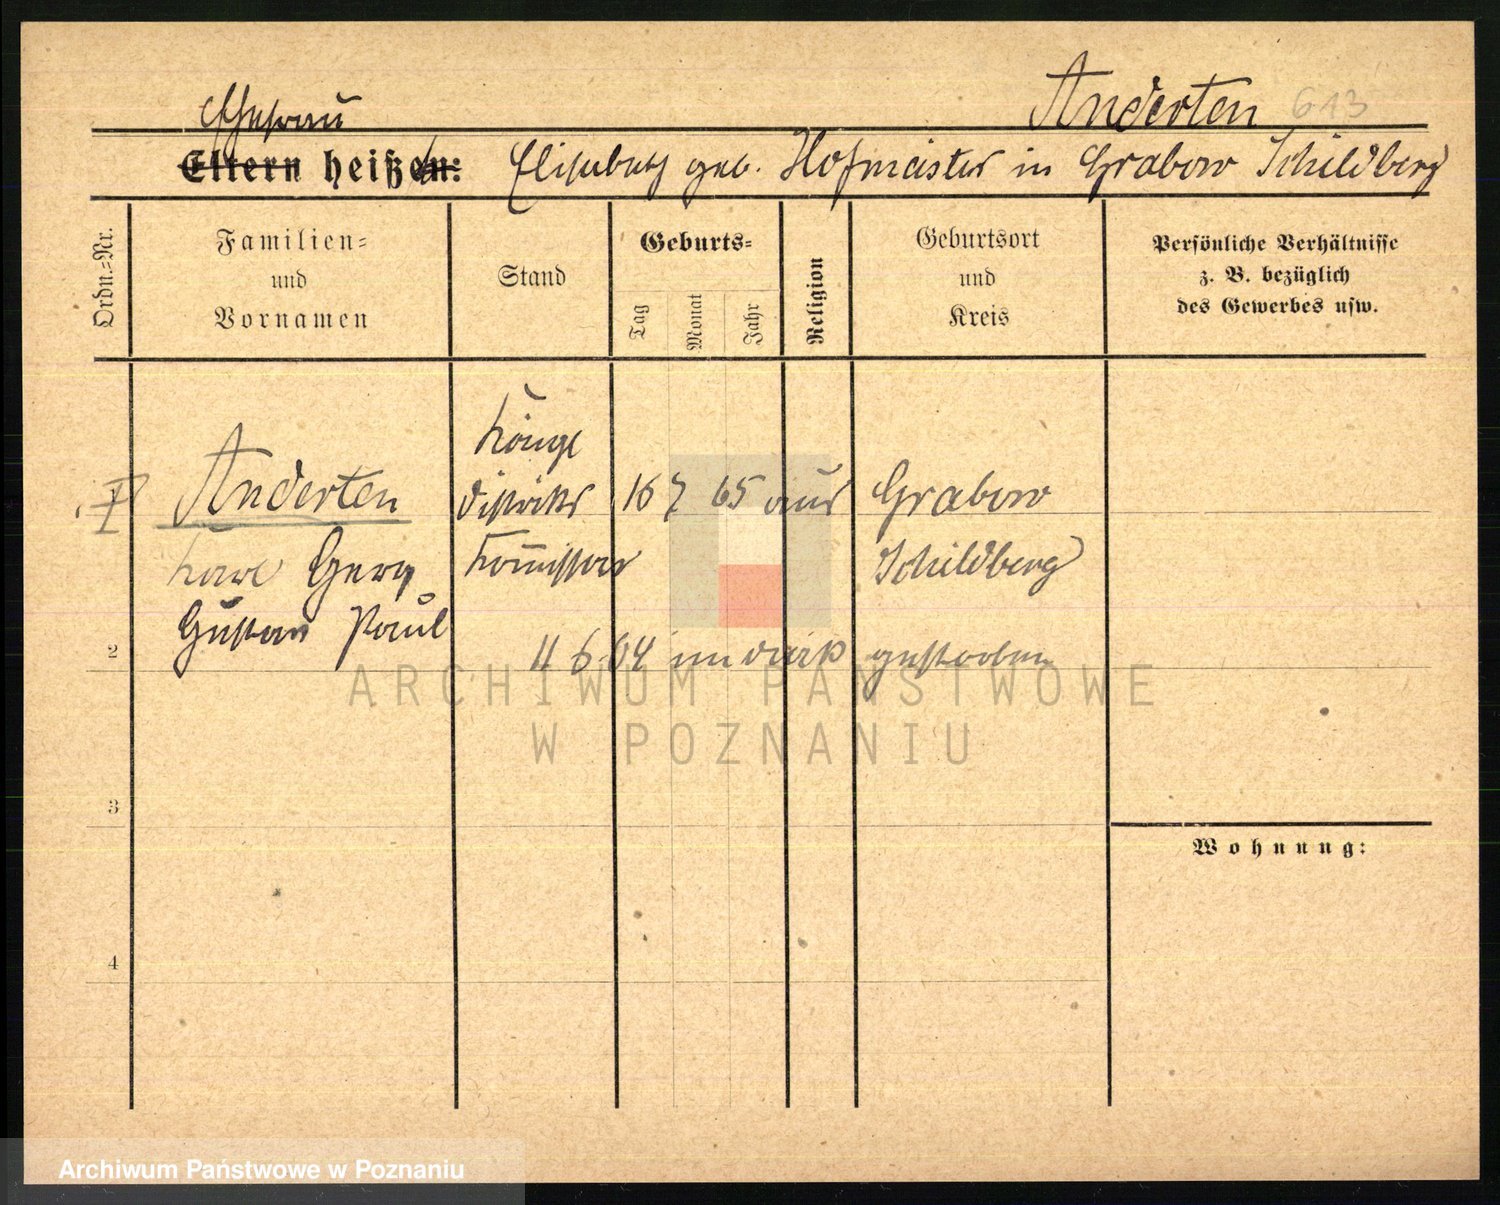 Anderten 613
Ehefrau
Eltern heißen: Elisabeth geb. Hofmeister in Grabow Schildberg
Ordn.=Nr.
Familien=
und
Vornamen
Stand
Geburts=
Tag
Monat
Jahr
Religion
Geburtsort
und
Kreis
Persönliche Verhältnisse
z. B. bezüglich
des Gewerbes usw.
Köngl
Anderten Distrikts 16 7 65 aus Grabow
Karl Georg Kommissar Schildberg
Gustav Paul
2 4 6 04 im gestorben
3
Wohnung:
4
ARCHIWUM PAŃSTWOWE
W POZNANIU
Archiwum Państwowe w Poznaniu